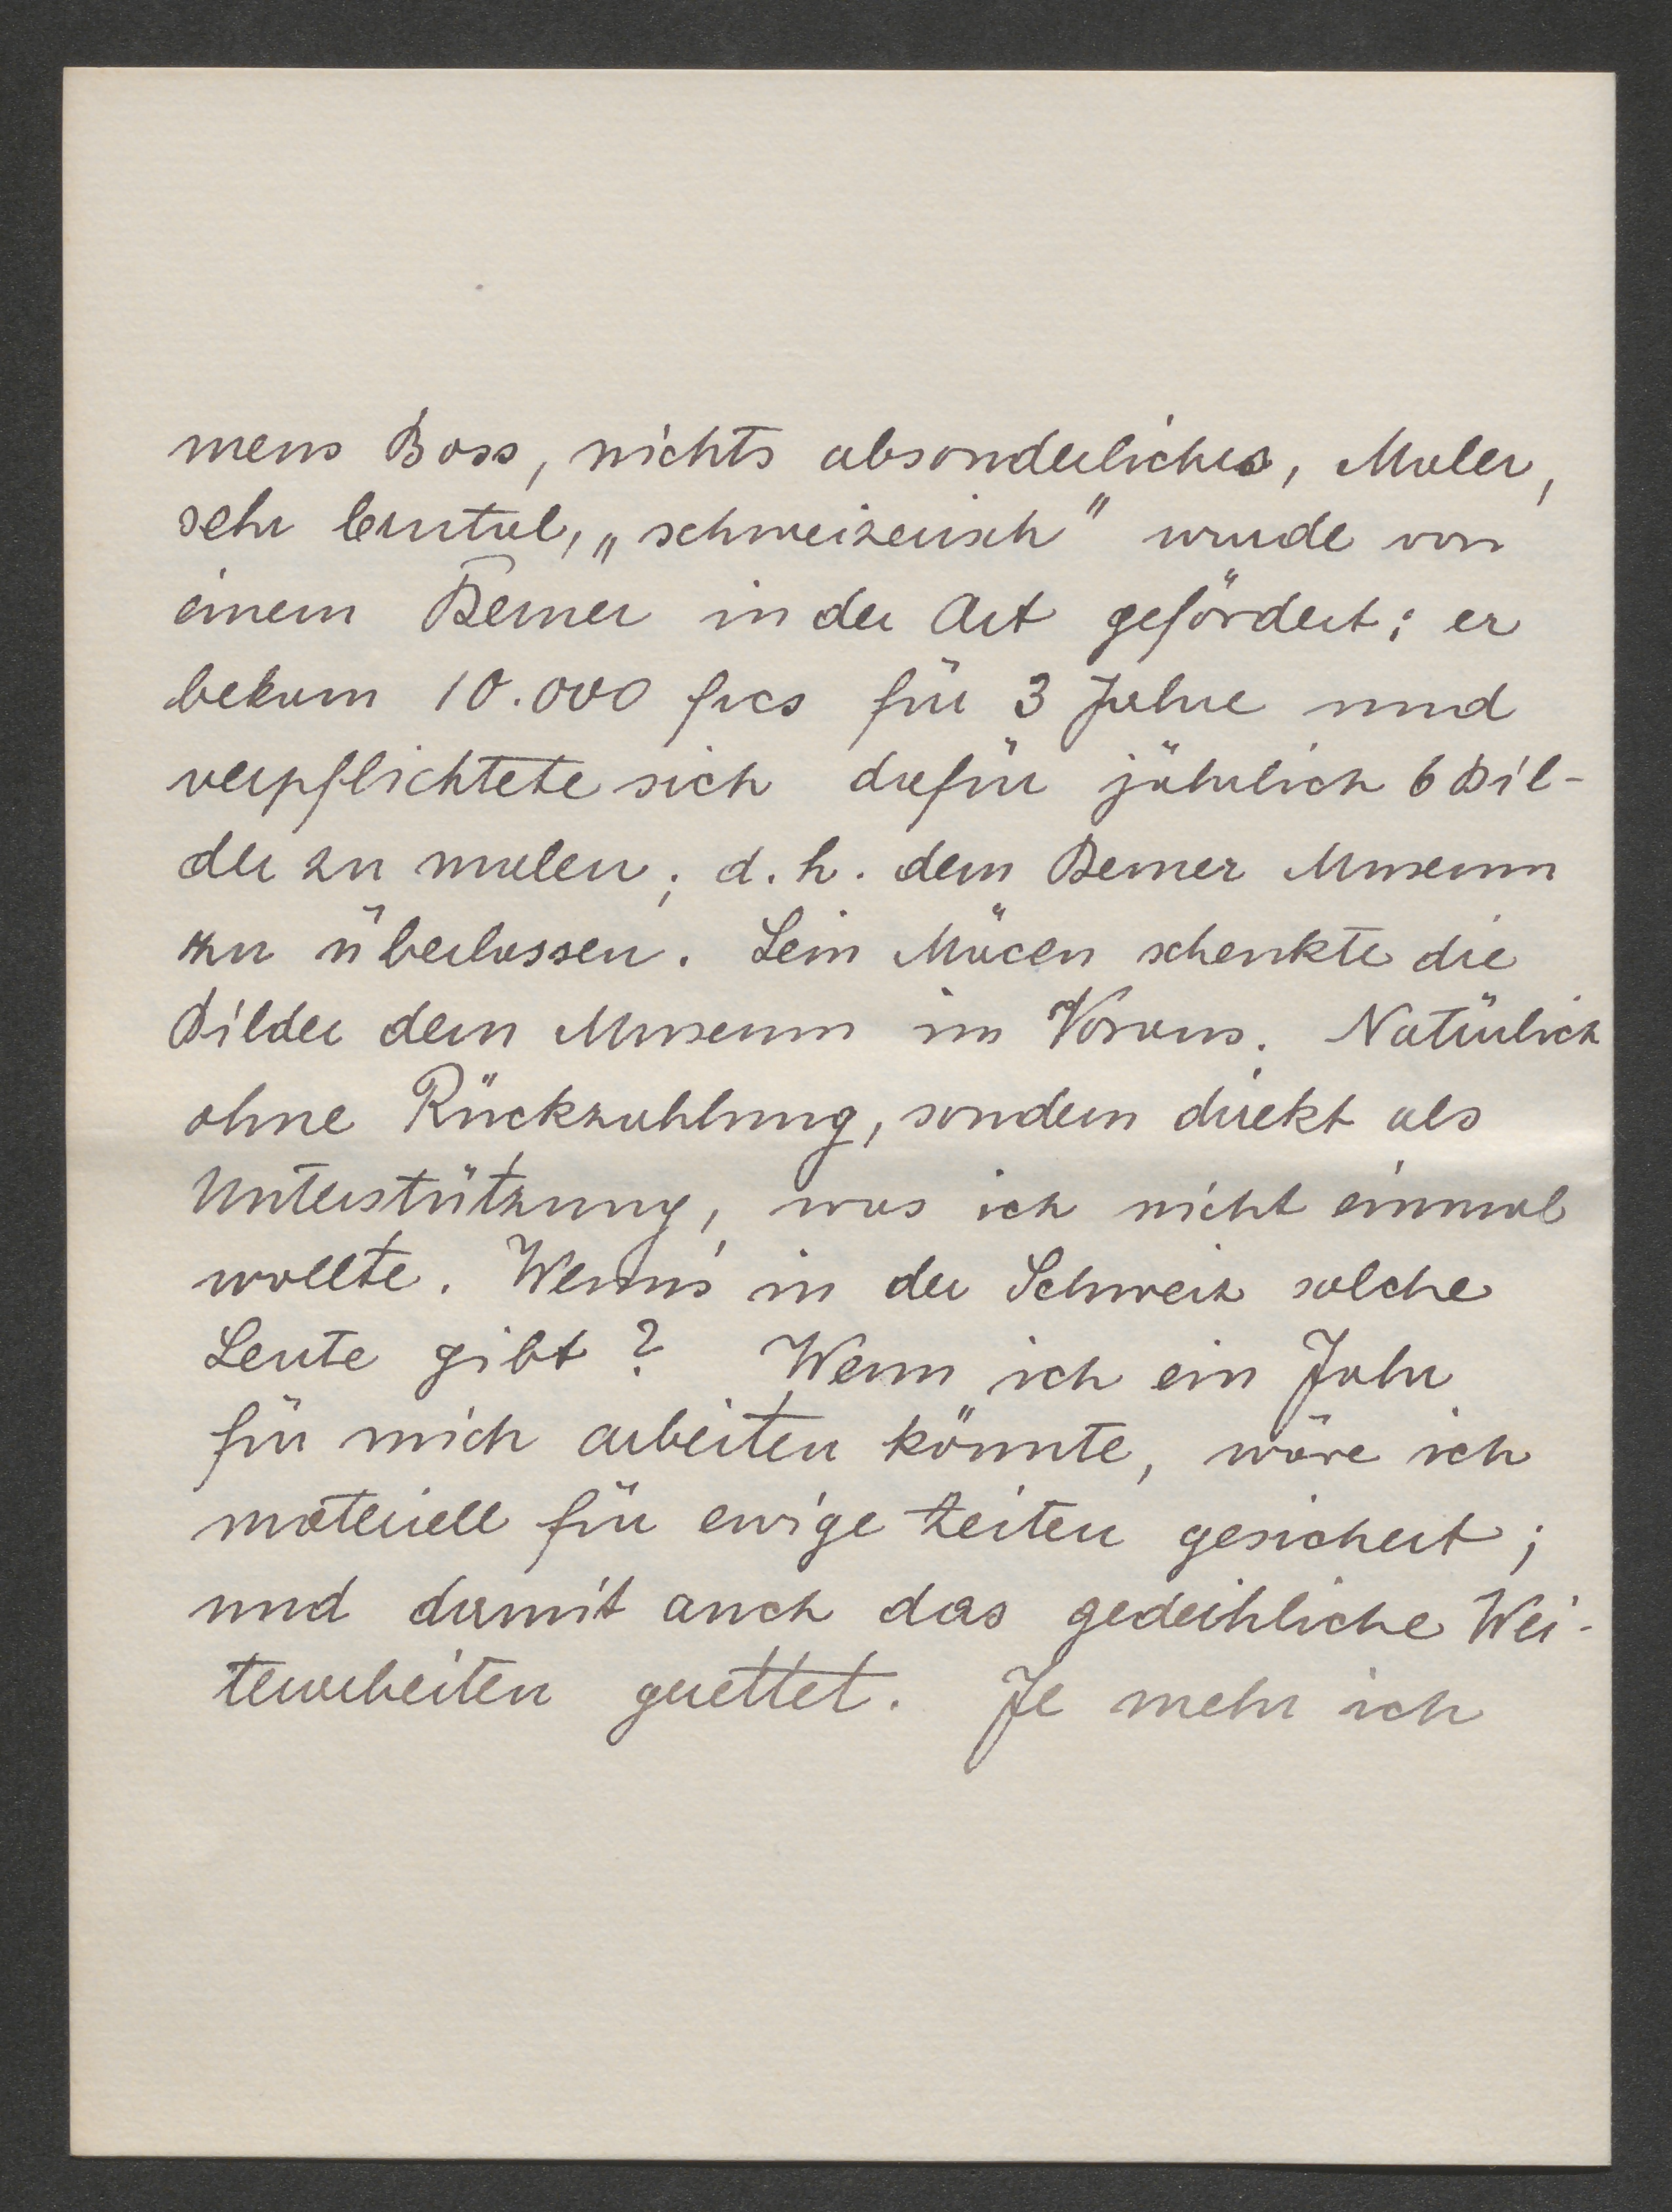 mens Boss, nichts absonderliches, Maler,
sehr brutal, „schweizerisch" wurde von
einem Berner in der Art gefördert: er
bekam 10.000 frcs für 3 Jahre und
verpflichtete sich dafür jährlich 6 Bil-
der zu malen, d.h. dem Berner Museum
zu überlassen. Sein Mäcen schenkte die
Bilder dem Museum im Voraus. Natürlich
ohne Rückzahlung, sondern direkt als
Unterstützung, was ich nicht einmal
wollte. Wenn's in der Schweiz solche
Leute gibt? Wenn ich ein Jahr
für mich arbeiten könnte, wäre ich
materiell für ewige Zeiten gesichert;
und damit auch das gedeihliche Wei-
terarbeiten gerettet. Je mehr ich